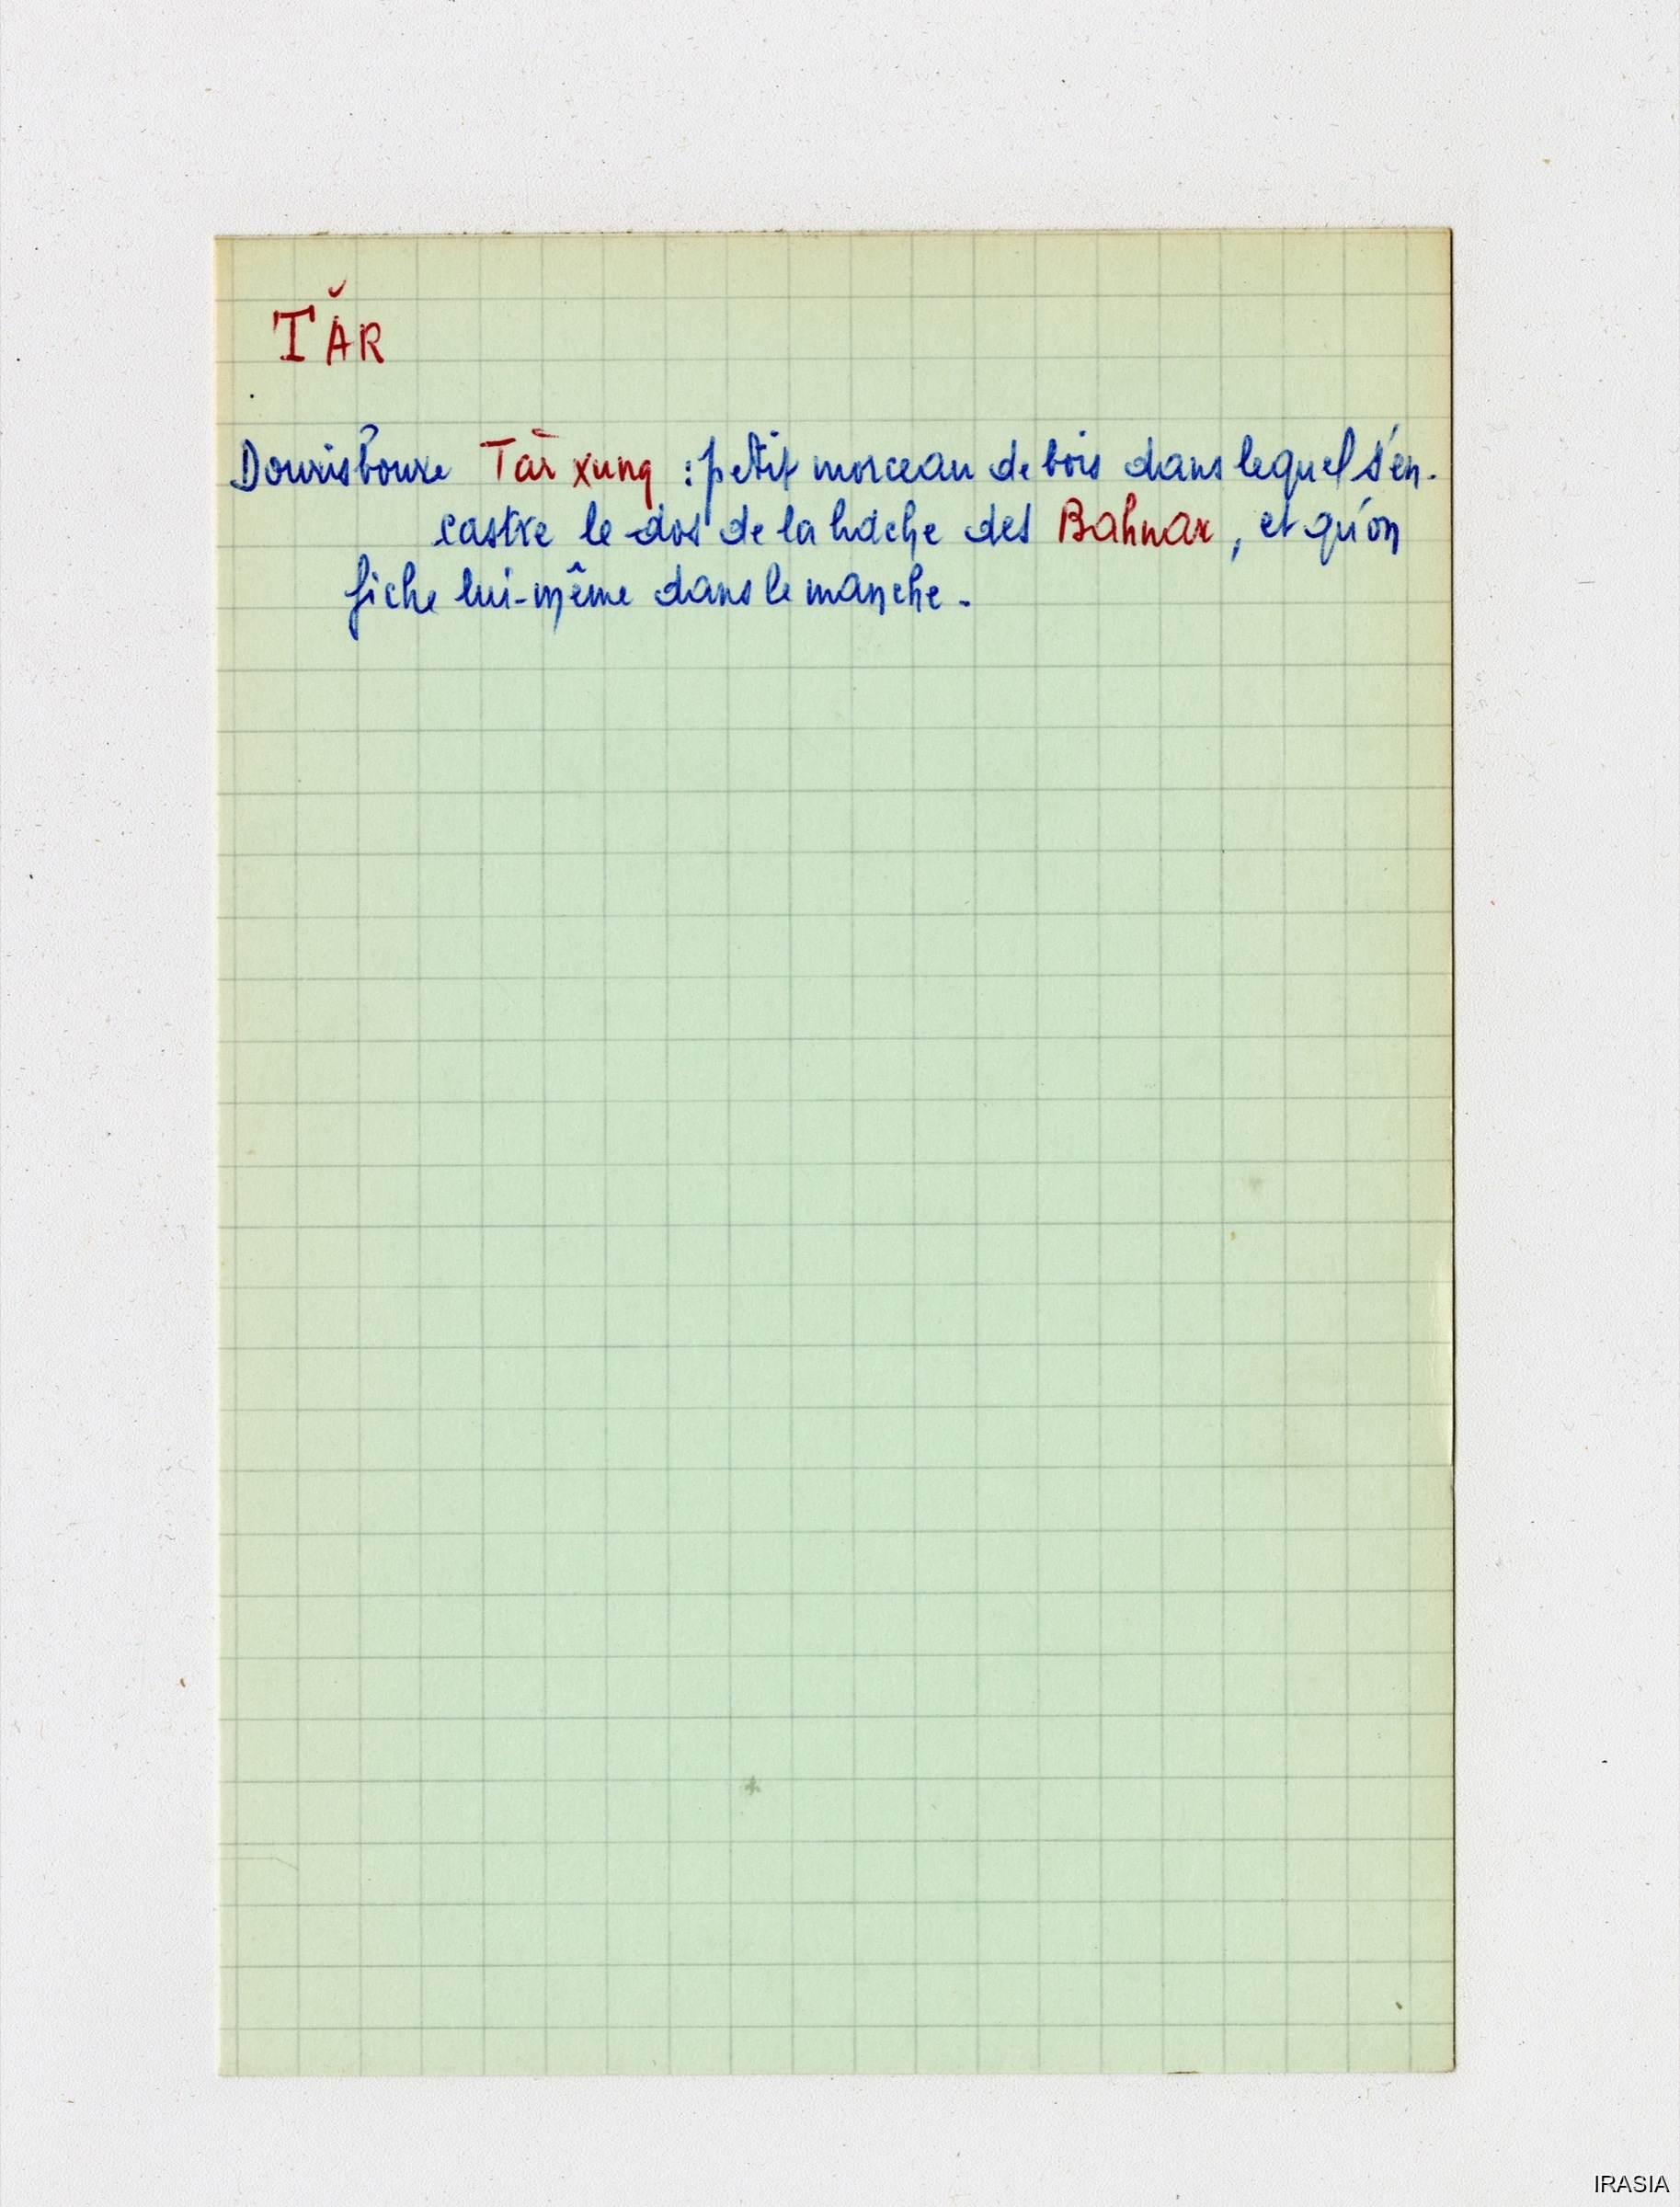 TĂR
Dourisboure Tàr xung : petit morceau de bois dans lequel s'en-
castre le dos de la hache des Bahnar, et qu'on
fiche lui-même dans le manche.
IRASIA